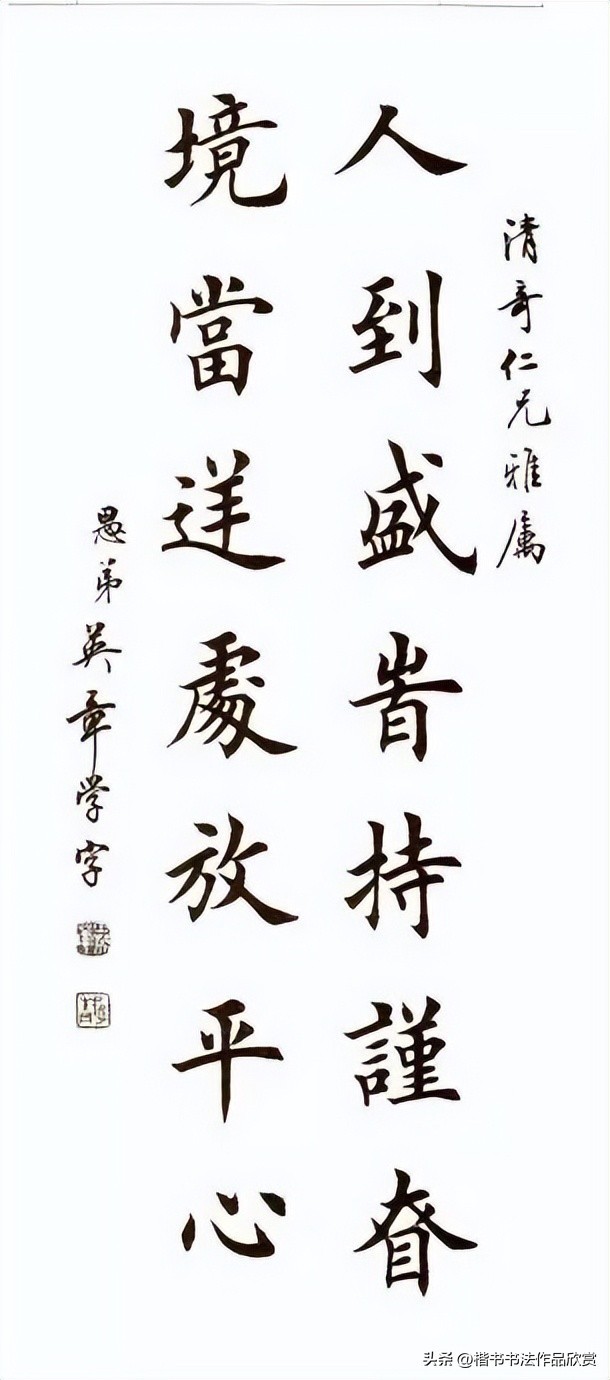 清奇仁兄雅属
人到盛旹持謹眘
境當逆處放平心
愚弟英章学字
头条 @楷书书法作品欣赏